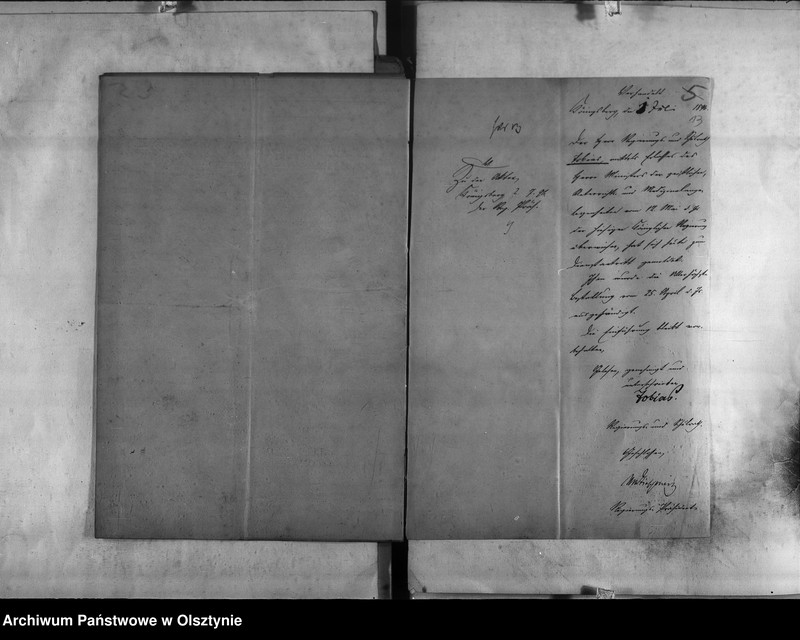 Verhandelt
5
Königsberg, den 3 Juli 18
13
Der Herr Regierungs- und Schulrath
Tobias, mittels Erlasses des
Herrn Ministers der geistlichen,
Unterrichts- und Medizinalange-
legenheiten vom 12 Mai d. Js.
der hiesigen Königlichen Regierung
überwiesen, hat sich heute zum
Dienstantritt gemeldet.
Ihm wurde die Allerhöchste
Bestallung vom 25. April d. Js.
ausgehändigt.
Die Einführung bleibt vor-
behalten.
Gelesen, genehmigt und
unterschrieben
Tobias.
Regierungs- und Schulrath.
Geschlossen,
Regierungs-Präsident.
Zu den Akten.
Königsberg
der Reg. Präs.
Archiwum Państwowe w Olsztynie